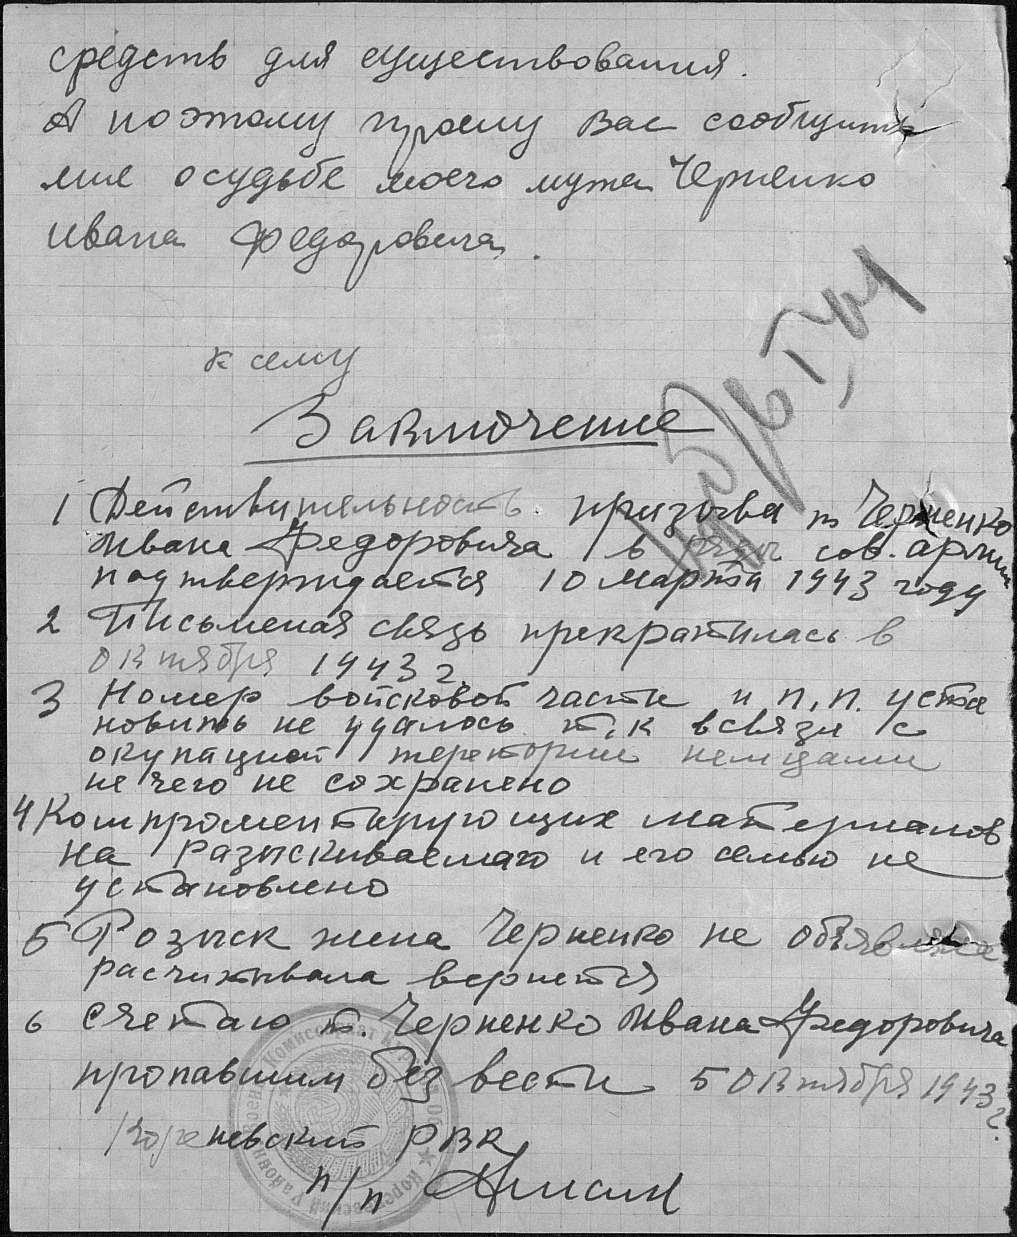 средств для существования.
А поэтому прошу Вас сообщить
мне о судьбе моего мужа Черненко
Ивана Федоровича.
к сему
Заключение
1 Действительность призыва т Черненко
Ивана Федоровича в ряды сов. армии
подтверждается 10 марта 1943 году
2 Письменая связь прекратилась в
октября 1943 г
3 Номер войсковой части и п.п. уста
новить не удалось т.к всвязи с
окупацией теретории немцами
не чего не сохранено
4 Компроментирующих материалов
на разыскиваемаго и его семью не
установлено
5 Розыск жена Черненко не объявляла
расчитывала вернется
6 Счетаю т. Черненко Ивана Федоровича
пропавшим без вести 5 октября 1943 г.
Кореневский РВК
п/п